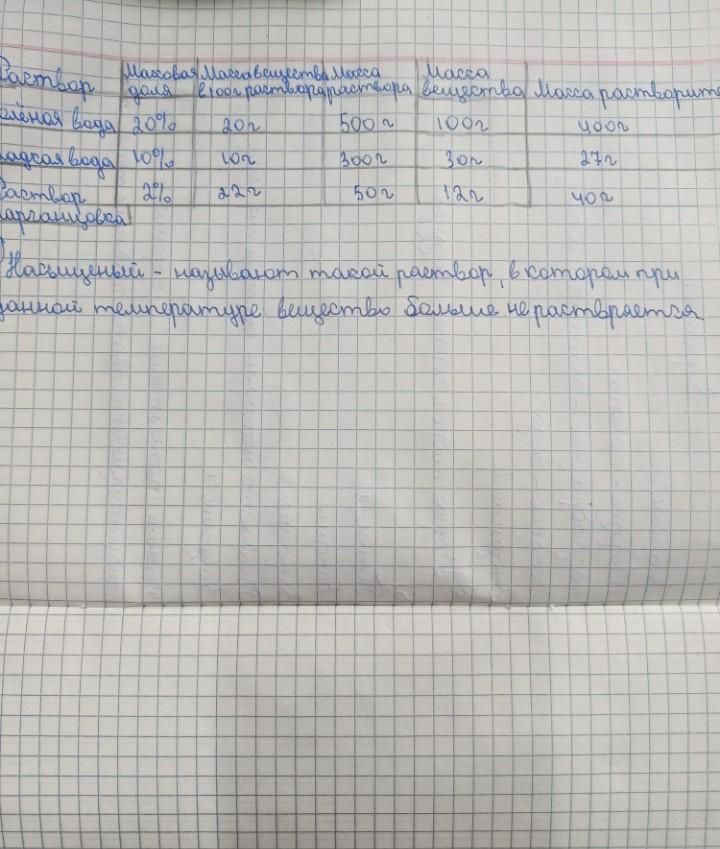 Раствор Массовая доля Масса вещества в 100г раствора Масса раствора Масса вещества Масса растворит
олёная вода 20% 20г 500г 100г 400г
ладкая вода 10% 10г 300г 30г 27г
Раствор марганцовка 2% 22г 50г 12г 40г
Насыщеный - называют такой раствор, в котором при
данной температуре вещество больше не растворяется